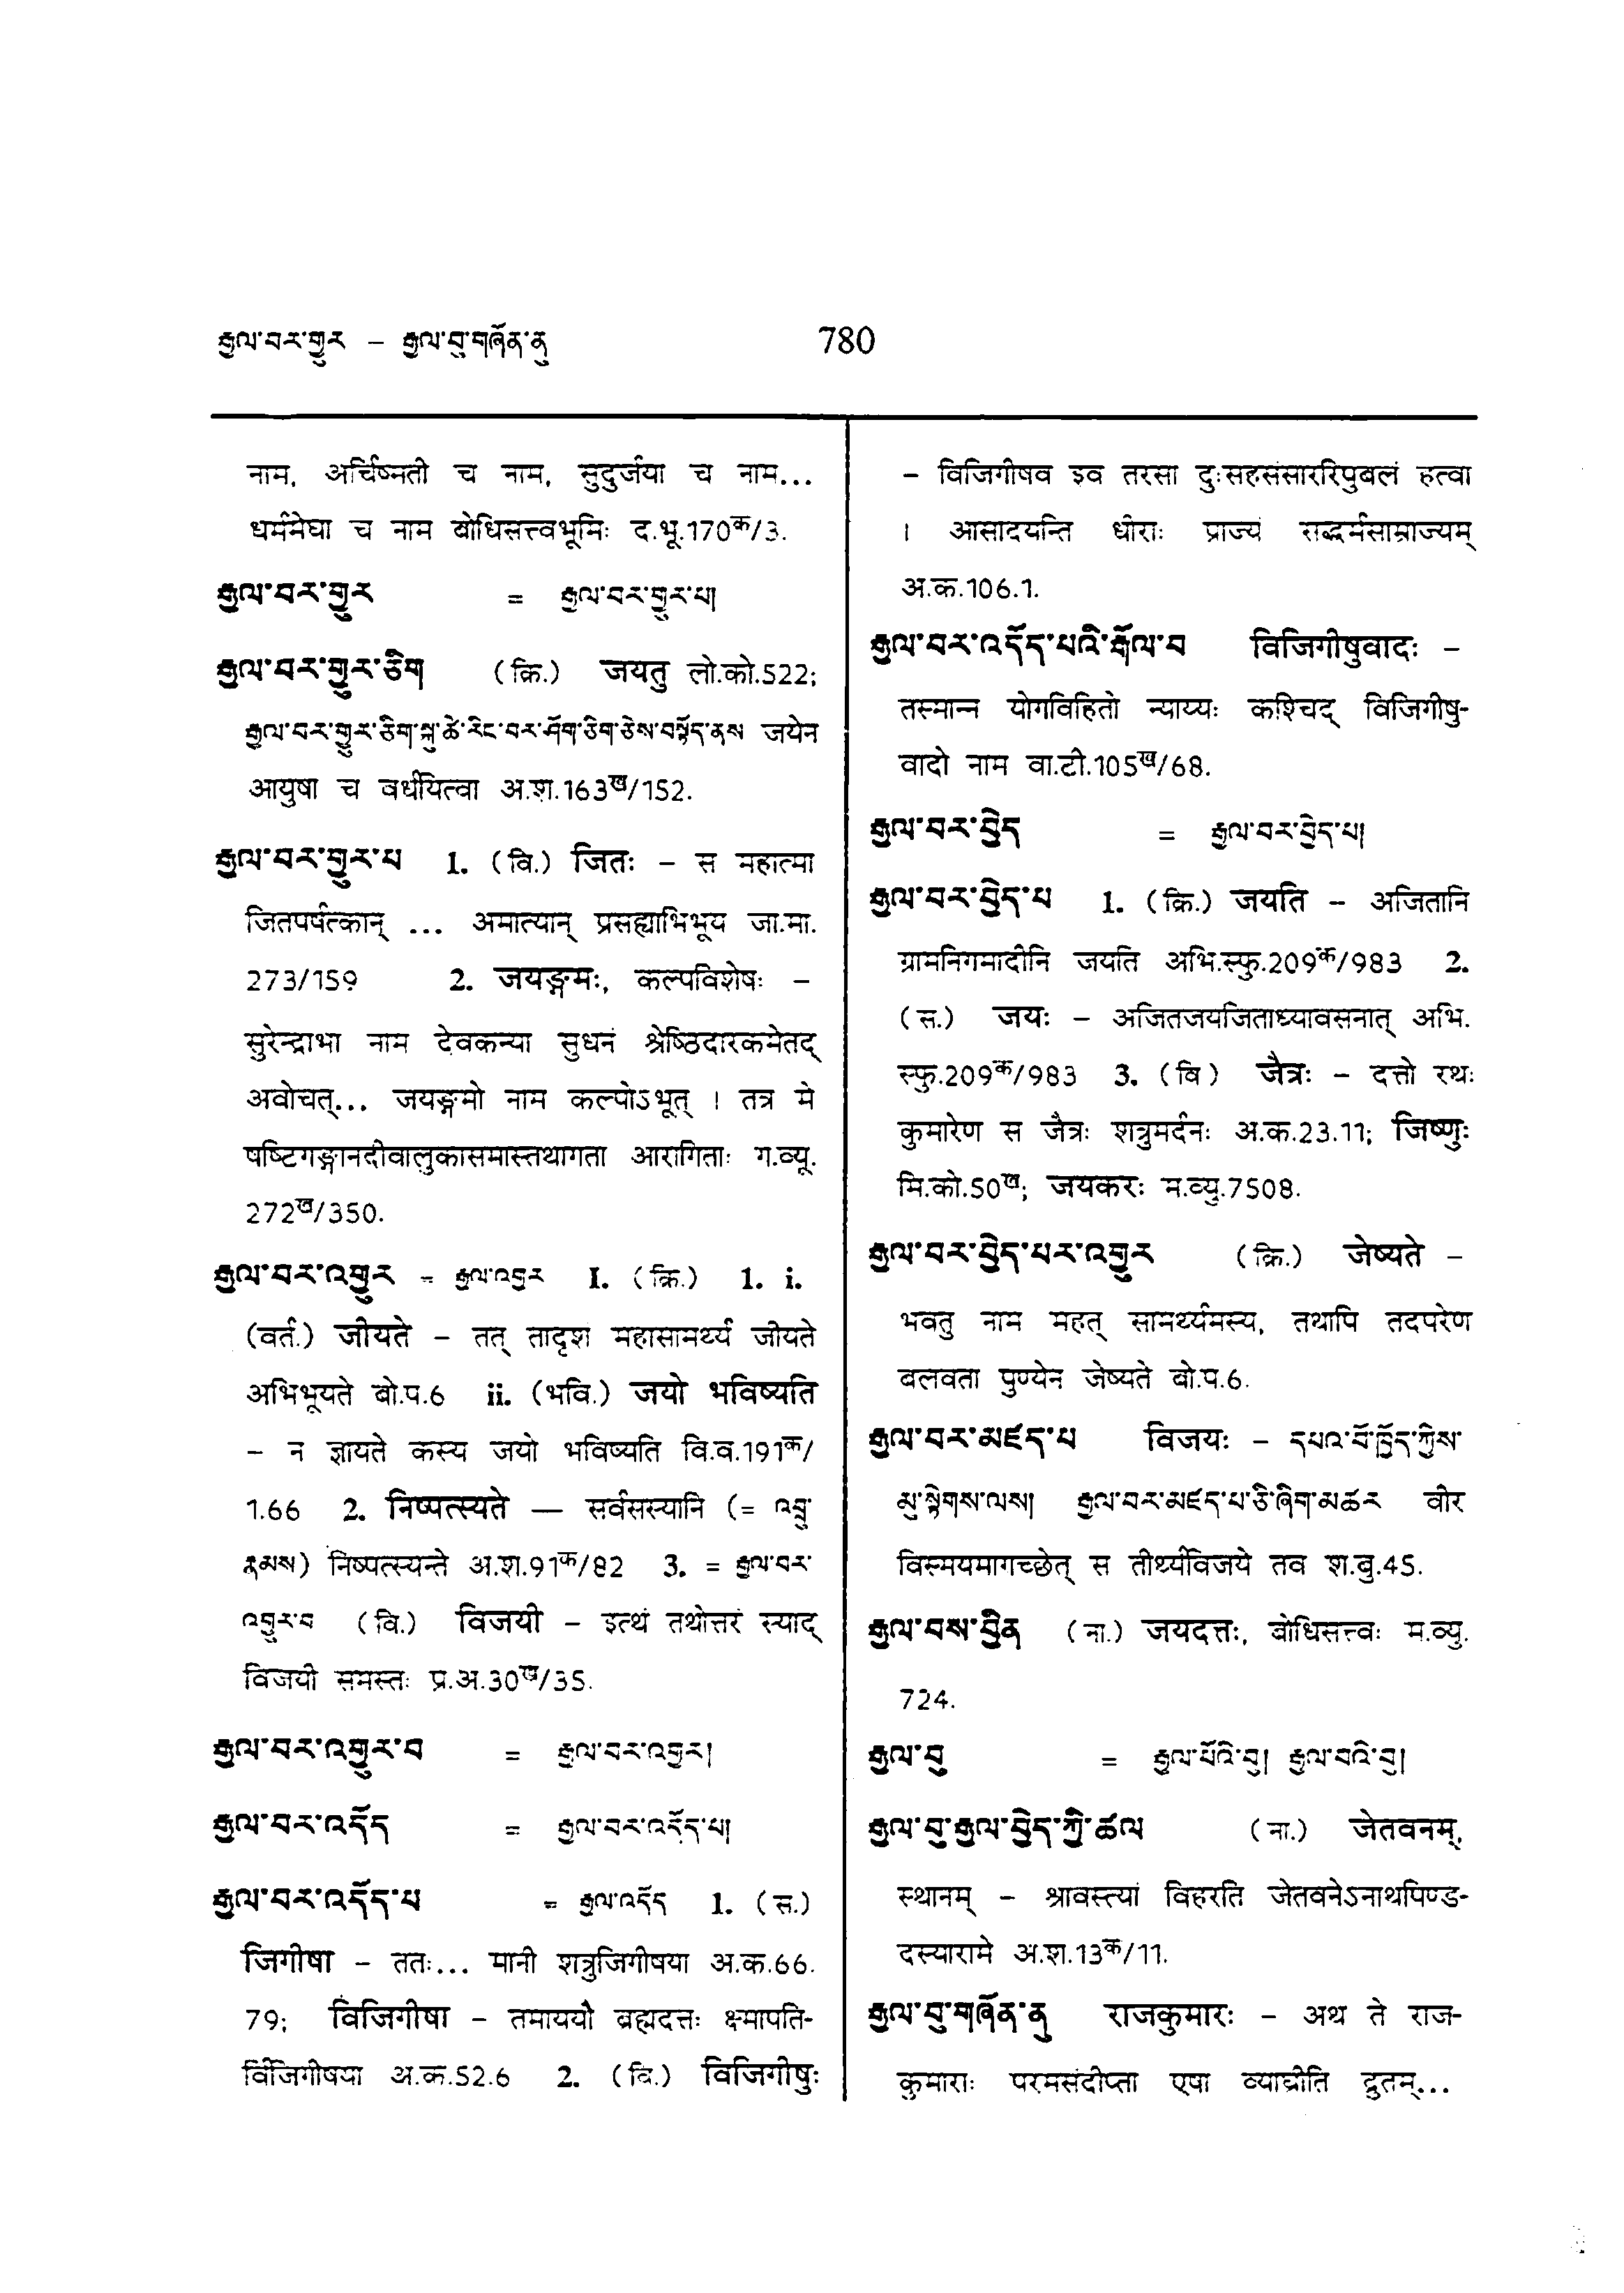 རྒྱལ་བར་གྱུར – རྒྱལ་བུ་གཞོན་ནུ 780
नाम, अर्चिष्मती च नाम, सुदुर्जया च नाम...
धर्ममेघा च नाम बोधिसत्त्वभूमिः द.भू.170क/3.
རྒྱལ་བར་གྱུར = རྒྱལ་བར་གྱུར་པ།
རྒྱལ་བར་གྱུར་ཅིག (क्रि.) जयतु लो.को.522;
རྒྱལ་བར་གྱུར་ཅིག་སྐུ་ཚེ་རིང་བར་ཤོག་ཅིག་ཅེས་བསྟོད་ནས जयेन
आयुषा च वर्धयित्वा अ.श.163ख/152.
རྒྱལ་བར་གྱུར་པ 1. (वि.) जितः – स महात्मा
जितपर्षत्कान् ... अमात्यान् प्रसह्याभिभूय जा.मा.
273/159 2. जयङ्गमः, कल्पविशेषः –
सुरेन्द्राभा नाम देवकन्या सुधनं श्रेष्ठिदारकमेतद्
अवोचत्... जयङ्गमो नाम कल्पोऽभूत् । तत्र मे
षष्टिगङ्गानदीवालुकासमास्तथागता आरागिताः ग.व्यू.
272ख/350.
རྒྱལ་བར་འགྱུར = རྒྱལ་འགྱུར I. (क्रि.) 1. i.
(वर्त.) जीयते – तत् तादृशं महासामर्थ्यं जीयते
अभिभूयते बो.प.6 ii. (भवि.) जयो भविष्यति
– न ज्ञायते कस्य जयो भविष्यति वि.व.191क/
1.66 2. निष्पत्स्यते — सर्वसस्यानि (= འབྲུ་
རྣམས) निष्पत्स्यन्ते अ.श.91क/82 3. = རྒྱལ་བར་
འགྱུར་བ (वि.) विजयी – इत्थं तथोत्तरं स्याद्
विजयी समस्तः प्र.अ.30ख/35.
རྒྱལ་བར་འགྱུར་བ = རྒྱལ་བར་འགྱུར།
རྒྱལ་བར་འདོད = རྒྱལ་བར་འདོད་པ།
རྒྱལ་བར་འདོད་པ = རྒྱལ་འདོད 1. (स.)
जिगीषा – ततः... मानी शत्रुजिगीषया अ.क.66.
79; विजिगीषा – तमाययौ ब्रह्मदत्तः क्ष्मापति-
र्विजिगीषया अ.क.52.6 2. (वि.) विजिगीषुः
– विजिगीषव इव तरसा दुःसहसंसाररिपुबलं हत्वा
। आसादयन्ति धीराः प्राज्यं सद्धर्मसाम्राज्यम्
अ.क.106.1.
རྒྱལ་བར་འདོད་པའི་རྒོལ་བ विजिगीषुवादः –
तस्मान्न योगविहितो न्याय्यः कश्चिद् विजिगीषु-
वादो नाम वा.टी.105ख/68.
རྒྱལ་བར་བྱེད = རྒྱལ་བར་བྱེད་པ།
རྒྱལ་བར་བྱེད་པ 1. (क्रि.) जयति – अजितानि
ग्रामनिगमादीनि जयति अभि.स्फु.209क/983 2.
(स.) जयः – अजितजयजिताध्यावसनात् अभि.
स्फु.209क/983 3. (वि) जैत्रः – दत्तो रथः
कुमारेण स जैत्रः शत्रुमर्दनः अ.क.23.11; जिष्णुः
मि.को.50ख; जयकरः म.व्यु.7508.
རྒྱལ་བར་བྱེད་པར་འགྱུར (क्रि.) जेष्यते –
भवतु नाम महत् सामर्थ्यमस्य, तथापि तदपरेण
बलवता पुण्येन जेष्यते बो.प.6.
རྒྱལ་བར་མཛད་པ विजयः – དཔའ་བོ་ཁྱོད་ཀྱིས་
མུ་སྟེགས་ལས། རྒྱལ་བར་མཛད་པ་ཅི་ཞིག་མཚར वीर
विस्मयमागच्छेत् स तीर्थ्यविजये तव श.बु.45.
རྒྱལ་བས་བྱིན (ना.) जयदत्तः, बोधिसत्त्वः म.व्यु.
724.
རྒྱལ་བུ = རྒྱལ་པོའི་བུ། རྒྱལ་བའི་བུ།
རྒྱལ་བུ་རྒྱལ་བྱེད་ཀྱི་ཚལ (ना.) जेतवनम्,
स्थानम् – श्रावस्त्यां विहरति जेतवनेऽनाथपिण्ड-
दस्यारामे अ.श.13क/11.
རྒྱལ་བུ་གཞོན་ནུ राजकुमारः – अथ ते राज-
कुमाराः परमसंदीप्ता एषा व्याघ्रीति द्रुतम्...